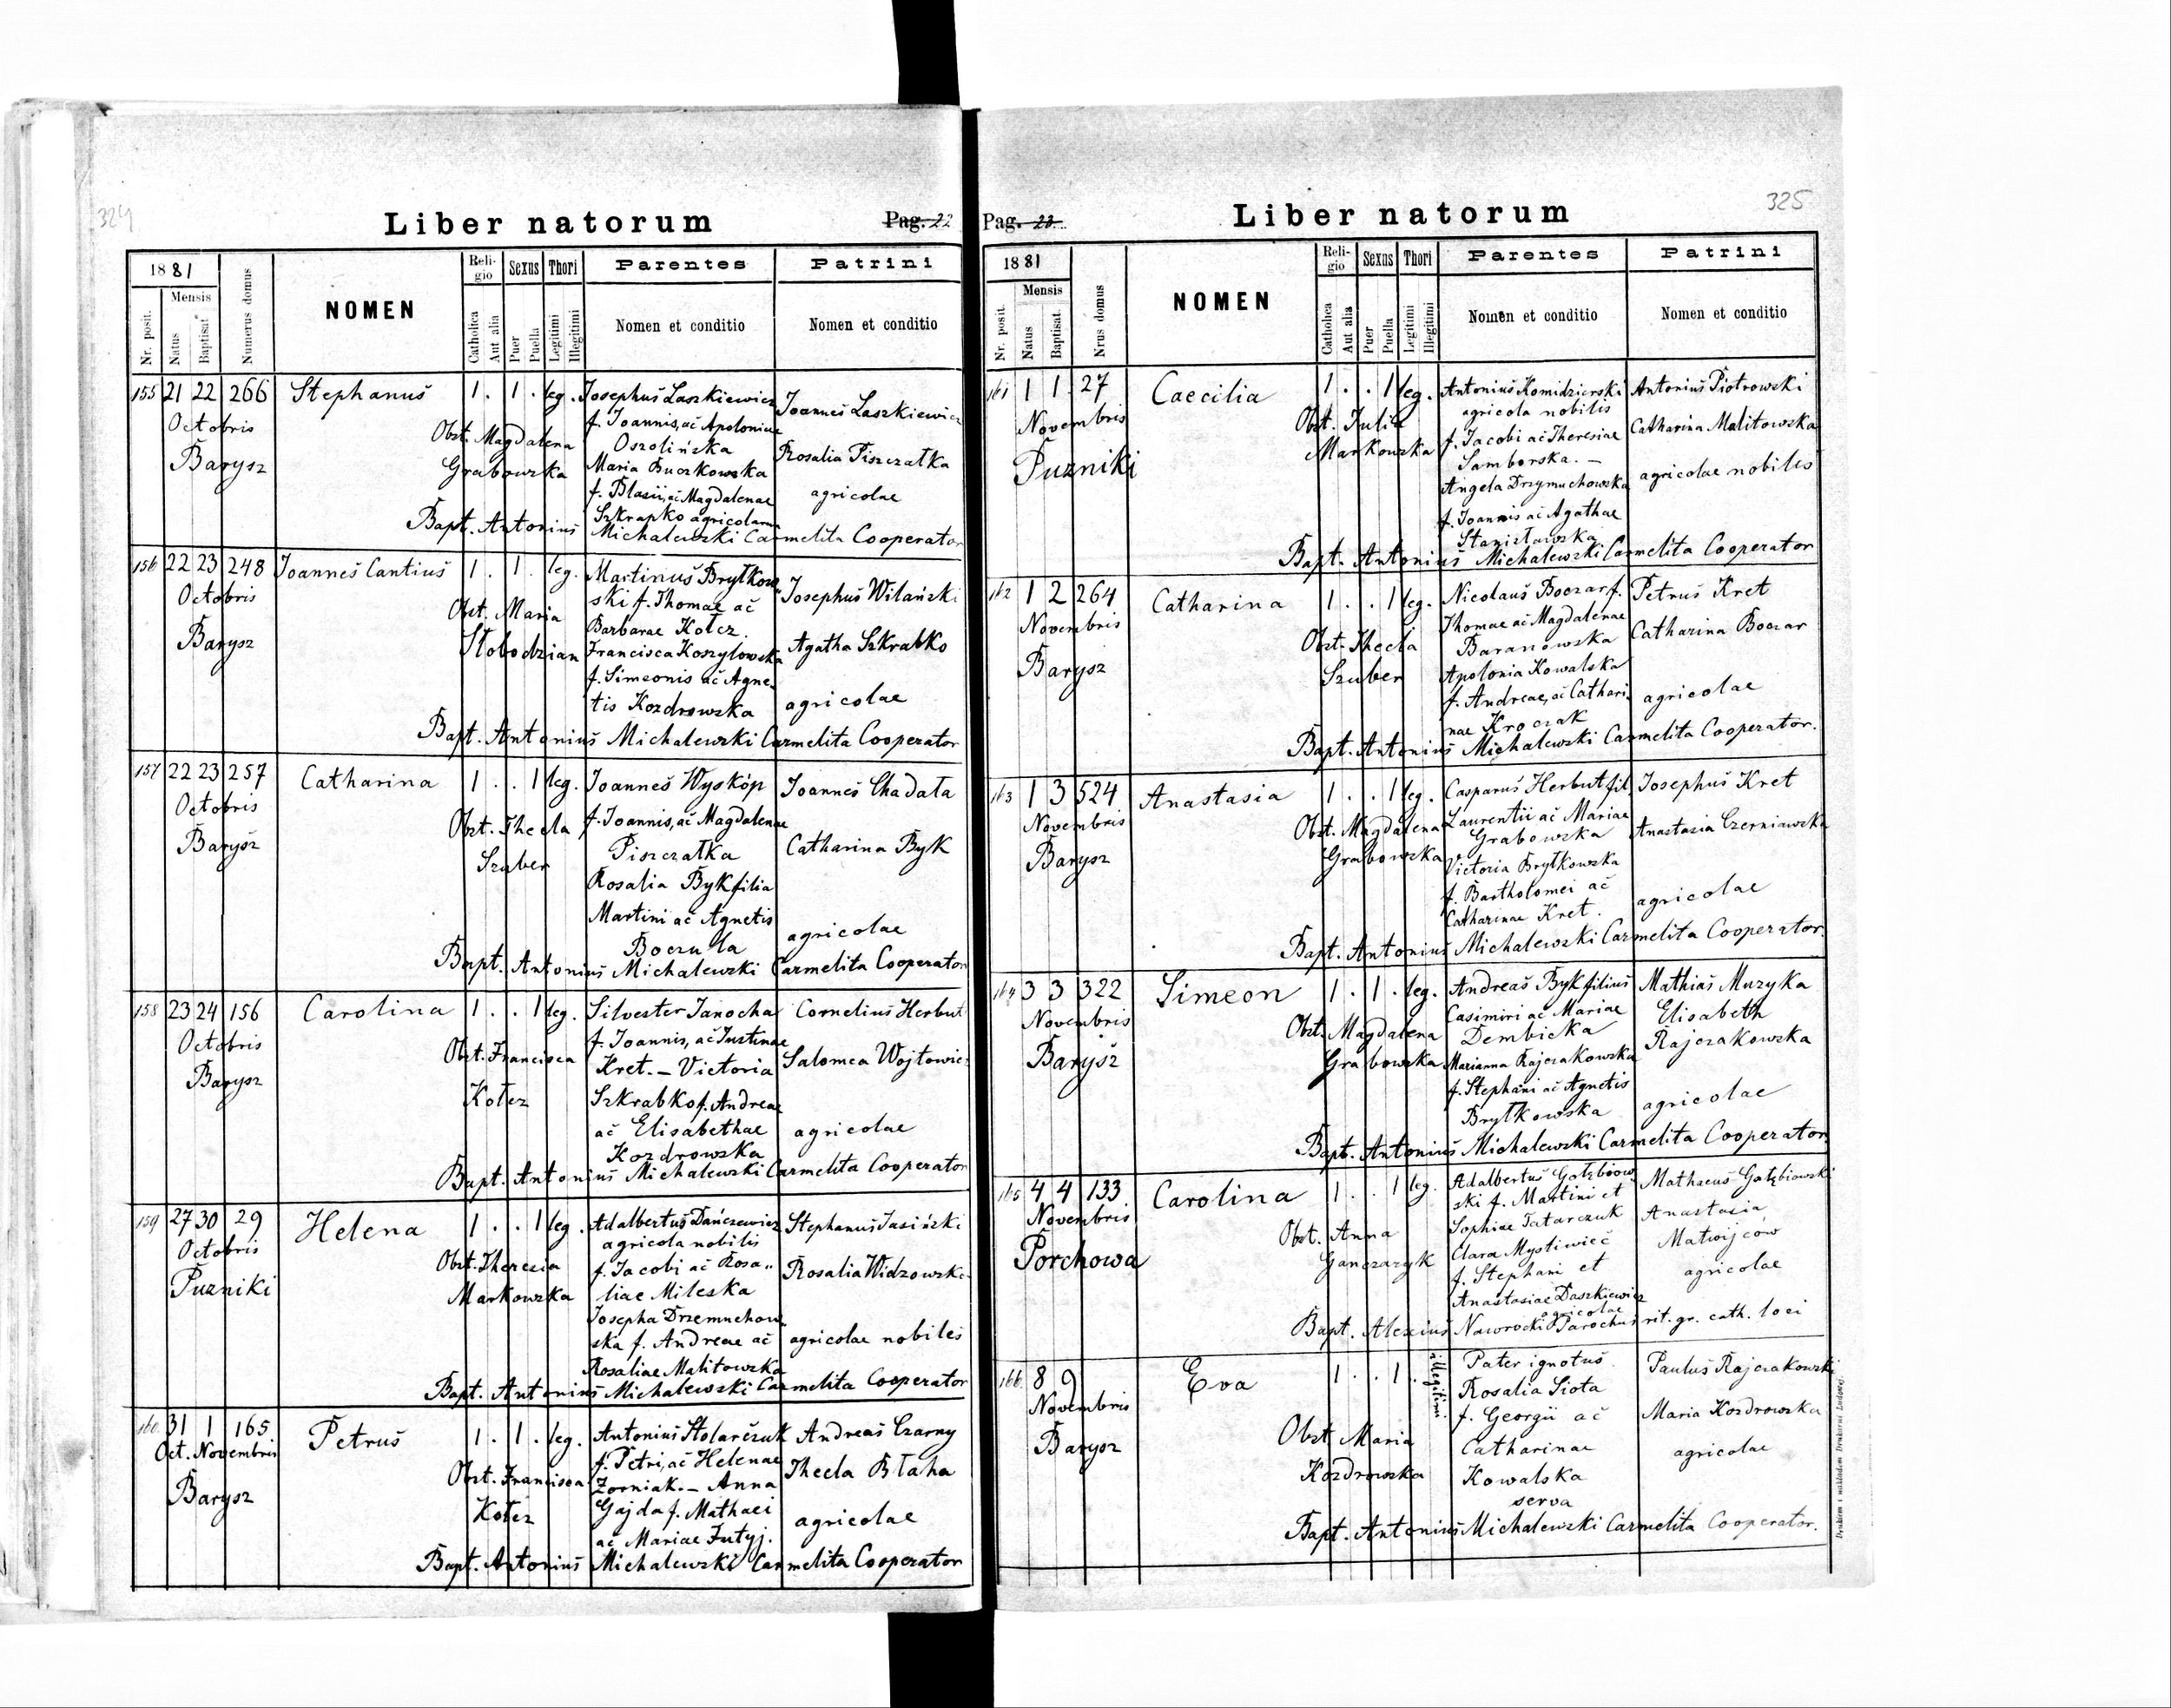 324
Liber natorum
Pag. 22
1881
Mensis
Nr. posit.
Natus
Baptisat.
Numerus domus
NOMEN
Religio
Catholica
Aut alia
Sexus
Puer
Puella
Thori
Legitimi
Illegitimi
Parentes
Nomen et conditio
Patrini
Nomen et conditio
155 21 22 266 Stephanus 1 . 1 . leg. Josephus Laszkiewicz
f. Joannis, ac Apoloniae Joannes Laszkiewicz
Octobris
Obst. Magdalena Oszolińska
Barysz Grabowska Maria Buczkowska Rosalia Piszczatka
f. Blasii, ac Magdalenae agricolae
Szkrapko agricolarum
Bapt. Antonius Michalewski Carmelita Cooperator
156 22 23 248 Joannes Cantius 1 . 1 . leg. Martinus Brytkow
Octobris Obst. Maria ski f. Thomae ac Josephus Wilański
Barbarae Kotcz.
Barysz Slobodzian Francisca Koszylowska Agatha Szkrabko
f. Simeonis ac Agne
tis Kozdrowska agricolae
Bapt. Antonius Michalewski Carmelita Cooperator
157 22 23 257 Catharina 1 . . 1 leg. Joannes Wyskóp Joannes Chadata
Octobris Obst. Thecla f. Joannis, ac Magdalenae
Barysz Szuber Piszczatka Catharina Byk
Rosalia Byk filia
Martini ac Agnetis
Boczuła agricolae
Bapt. Antonius Michalewski Carmelita Cooperator
158 23 24 156 Carolina 1 . . 1 leg. Silvester Janocha Cornelius Herbut
Octobris Obst. Francisca f. Joannis, ac Justinae
Barysz Kotcz Kret. – Victoria Salomea Wojtowicz
Szkrabko f. Andreae
ac Elisabethae agricolae
Kozdrowska
Bapt. Antonius Michalewski Carmelita Cooperator
159 27 30 29 Helena 1 . . 1 leg. Adalbertus Dańczewicz Stephanus Jasiński
Octobris agricola nobilis
Puzniki Obst. Theresia f. Jacobi ac Rosa„
Markowska liae Mileska Rosalia Widzowska
Josepha Drzemuchow
ska f. Andreae ac agricolae nobiles
Rosaliae Malitowska
Bapt. Antonius Michalewski Carmelita Cooperator
160 31 1 165 Petrus 1 . 1 . leg. Antonius Stolarczuk Andreas Czarny
Oct. Novembris f. Petri, ac Helenae
Barysz Obst. Francisca Zorniak. – Anna Thecla Błaha
Kotcz Gajda f. Mathaei
ac Mariae Futyj. agricolae
Bapt. Antonius Michalewski Carmelita Cooperator
325
Pag. 23
Liber natorum
1881
Mensis
Nr. posit.
Natus
Baptisat.
Nrus domus
NOMEN
Religio
Catholica
Aut alia
Sexus
Puer
Puella
Thori
Legitimi
Illegitimi
Parentes
Nomen et conditio
Patrini
Nomen et conditio
161 1 1 27 Caecilia 1 . . 1 leg. Antonius Komidzierski Antonius Piotrowski
Novembris Obst. Julia agricola nobilis
Puzniki Markowska f. Jacobi ac Theresiae Catharina Malitowska
Samborska. –
Angela Drzymuchowska agricolae nobiles
f. Joannis ac Agathae
Stanisławska
Bapt. Antonius Michalewski Carmelita Cooperator
162 1 2 264 Catharina 1 . . 1 leg. Nicolaus Boczar f. Petrus Kret
Novembris Obst. Thecla Thomae ac Magdalenae
Barysz Szuber Baranowska Catharina Boczar
Apolonia Kowalska
f. Andreae, ac Cathari agricolae
nae Kroczak
Bapt. Antonius Michalewski Carmelita Cooperator.
163 1 3 524 Anastasia 1 . . 1 leg. Casparus Herbut fil. Josephus Kret
Novembris Obst. Magdalena Laurentii ac Mariae
Barysz Grabowska Grabowska Anastasia Czerniawska
Victoria Brytkowska
f. Bartholomei ac agricolae
Catharinae Kret.
Bapt. Antonius Michalewski Carmelita Cooperator.
164 3 3 322 Simeon 1 . 1 . leg. Andreas Byk filius Mathias Muzyka
Novembris Obst. Magdalena Casimiri ac Mariae Elisabeth
Barysz Grabowska Dembicka Rajczakowska
Marianna Rajczakowska
f. Stephani ac Agnetis agricolae
Brytkowska
Bapt. Antonius Michalewski Carmelita Cooperator
165 4 4 133 Carolina 1 . . 1 leg. Adalbertus Gołębiow Mathaeus Gołębiowski
Novembris Obst. Anna ski f. Martini et
Porchowa Ganczaryk Sophiae Tatarczuk Anastasia
Clara Mystiwieć Matwijców
f. Stephani et agricolae
Anastasiae Daszkiewicz
agricolae
Bapt. Alexius Nawrocki Parochus rit. gr. cath. loci
166 8 9 Eva 1 . . 1 illegitimi. Pater ignotus Paulus Rajczakowski
Novembris Rosalia Siota
Barysz Obst Maria f. Georgii ac Maria Kozdrowska
Kozdrowska Catharinae agricolae
Kowalska
serva
Bapt. Antonius Michalewski Carmelita Cooperator.
Drukiem i nakładem Drukarni Ludowej.